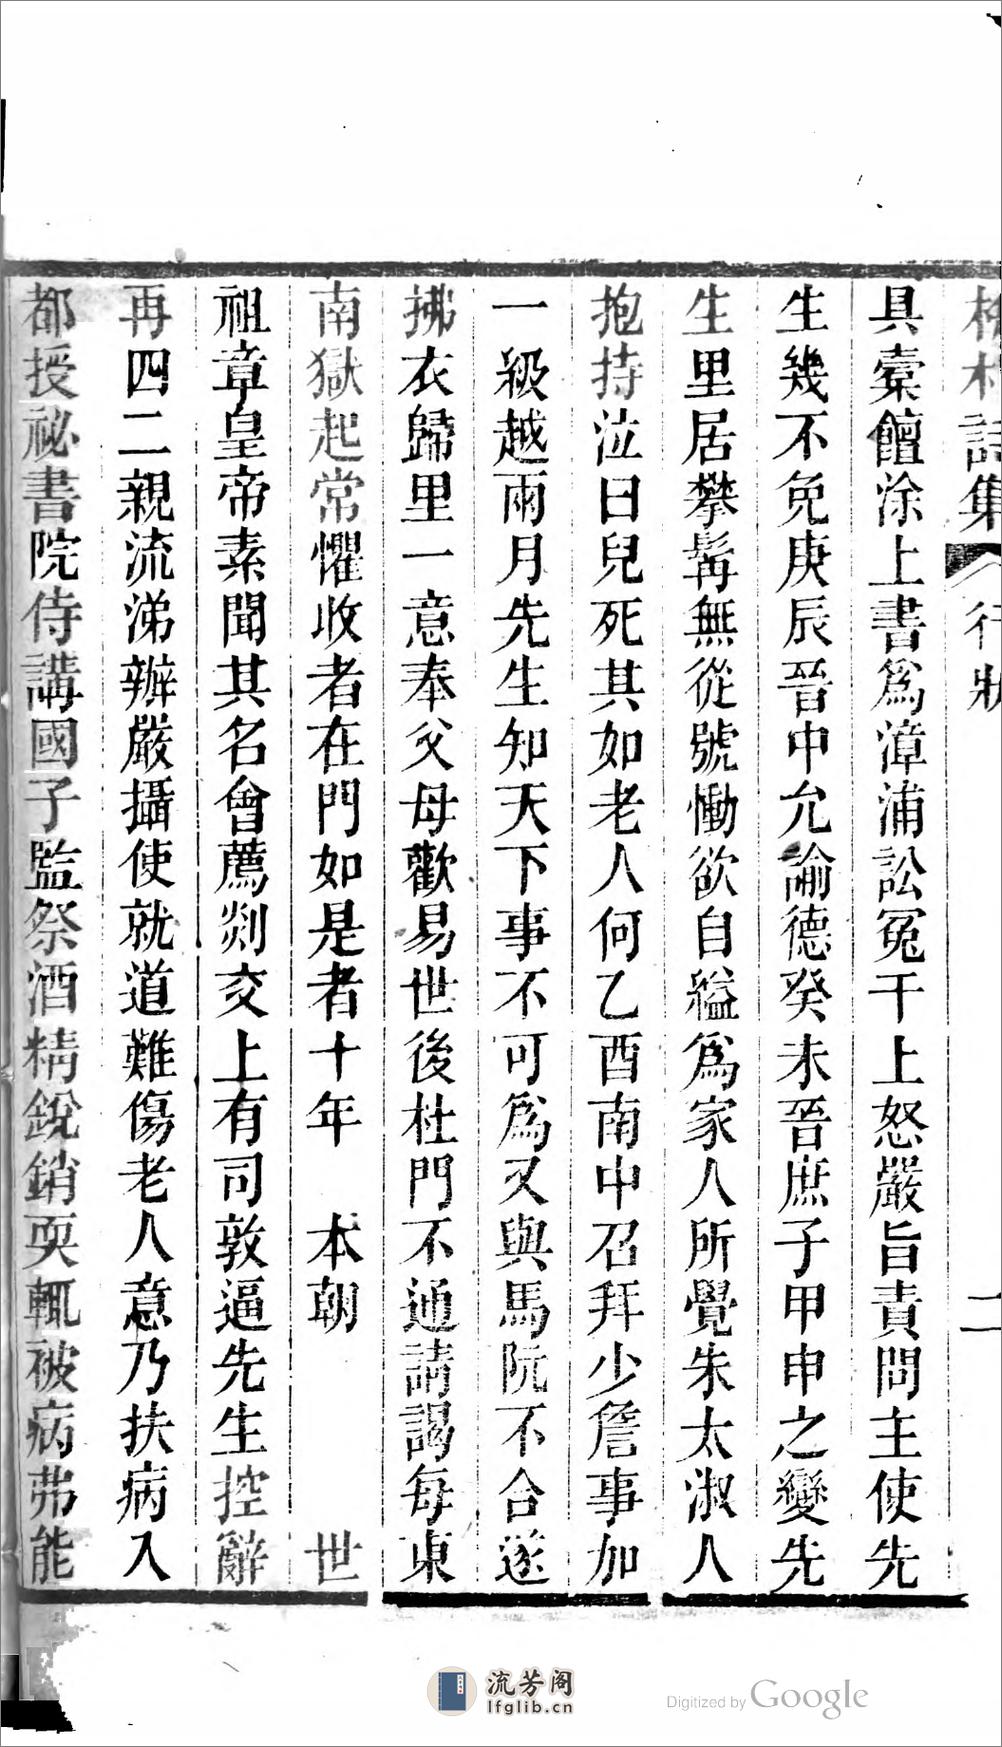 村詩集 行狀 二
具橐饘涂上書為漳浦訟冤干上怒嚴旨責問主使先
生幾不免庚辰晉中允諭德癸未晉庶子甲申之變先
生里居攀髯無從號慟欲自縊為家人所覺朱太淑人
抱持泣曰兒死其如老人何乙酉南中召拜少詹事加
一級越兩月先生知天下事不可為又與馬阮不合遂
拂衣歸里一意奉父母歡易世後杜門不通請謁每東
南獄起常懼收者在門如是者十年 本朝 世
祖章皇帝素聞其名會薦剡交上有司敦逼先生控辭
再四二親流涕辦嚴攝使就道難傷老人意乃扶病入
都授祕書院侍講國子監祭酒精銳銷耎輒被病弗能
流芳阁
lfglib.cn
Digitized by Google